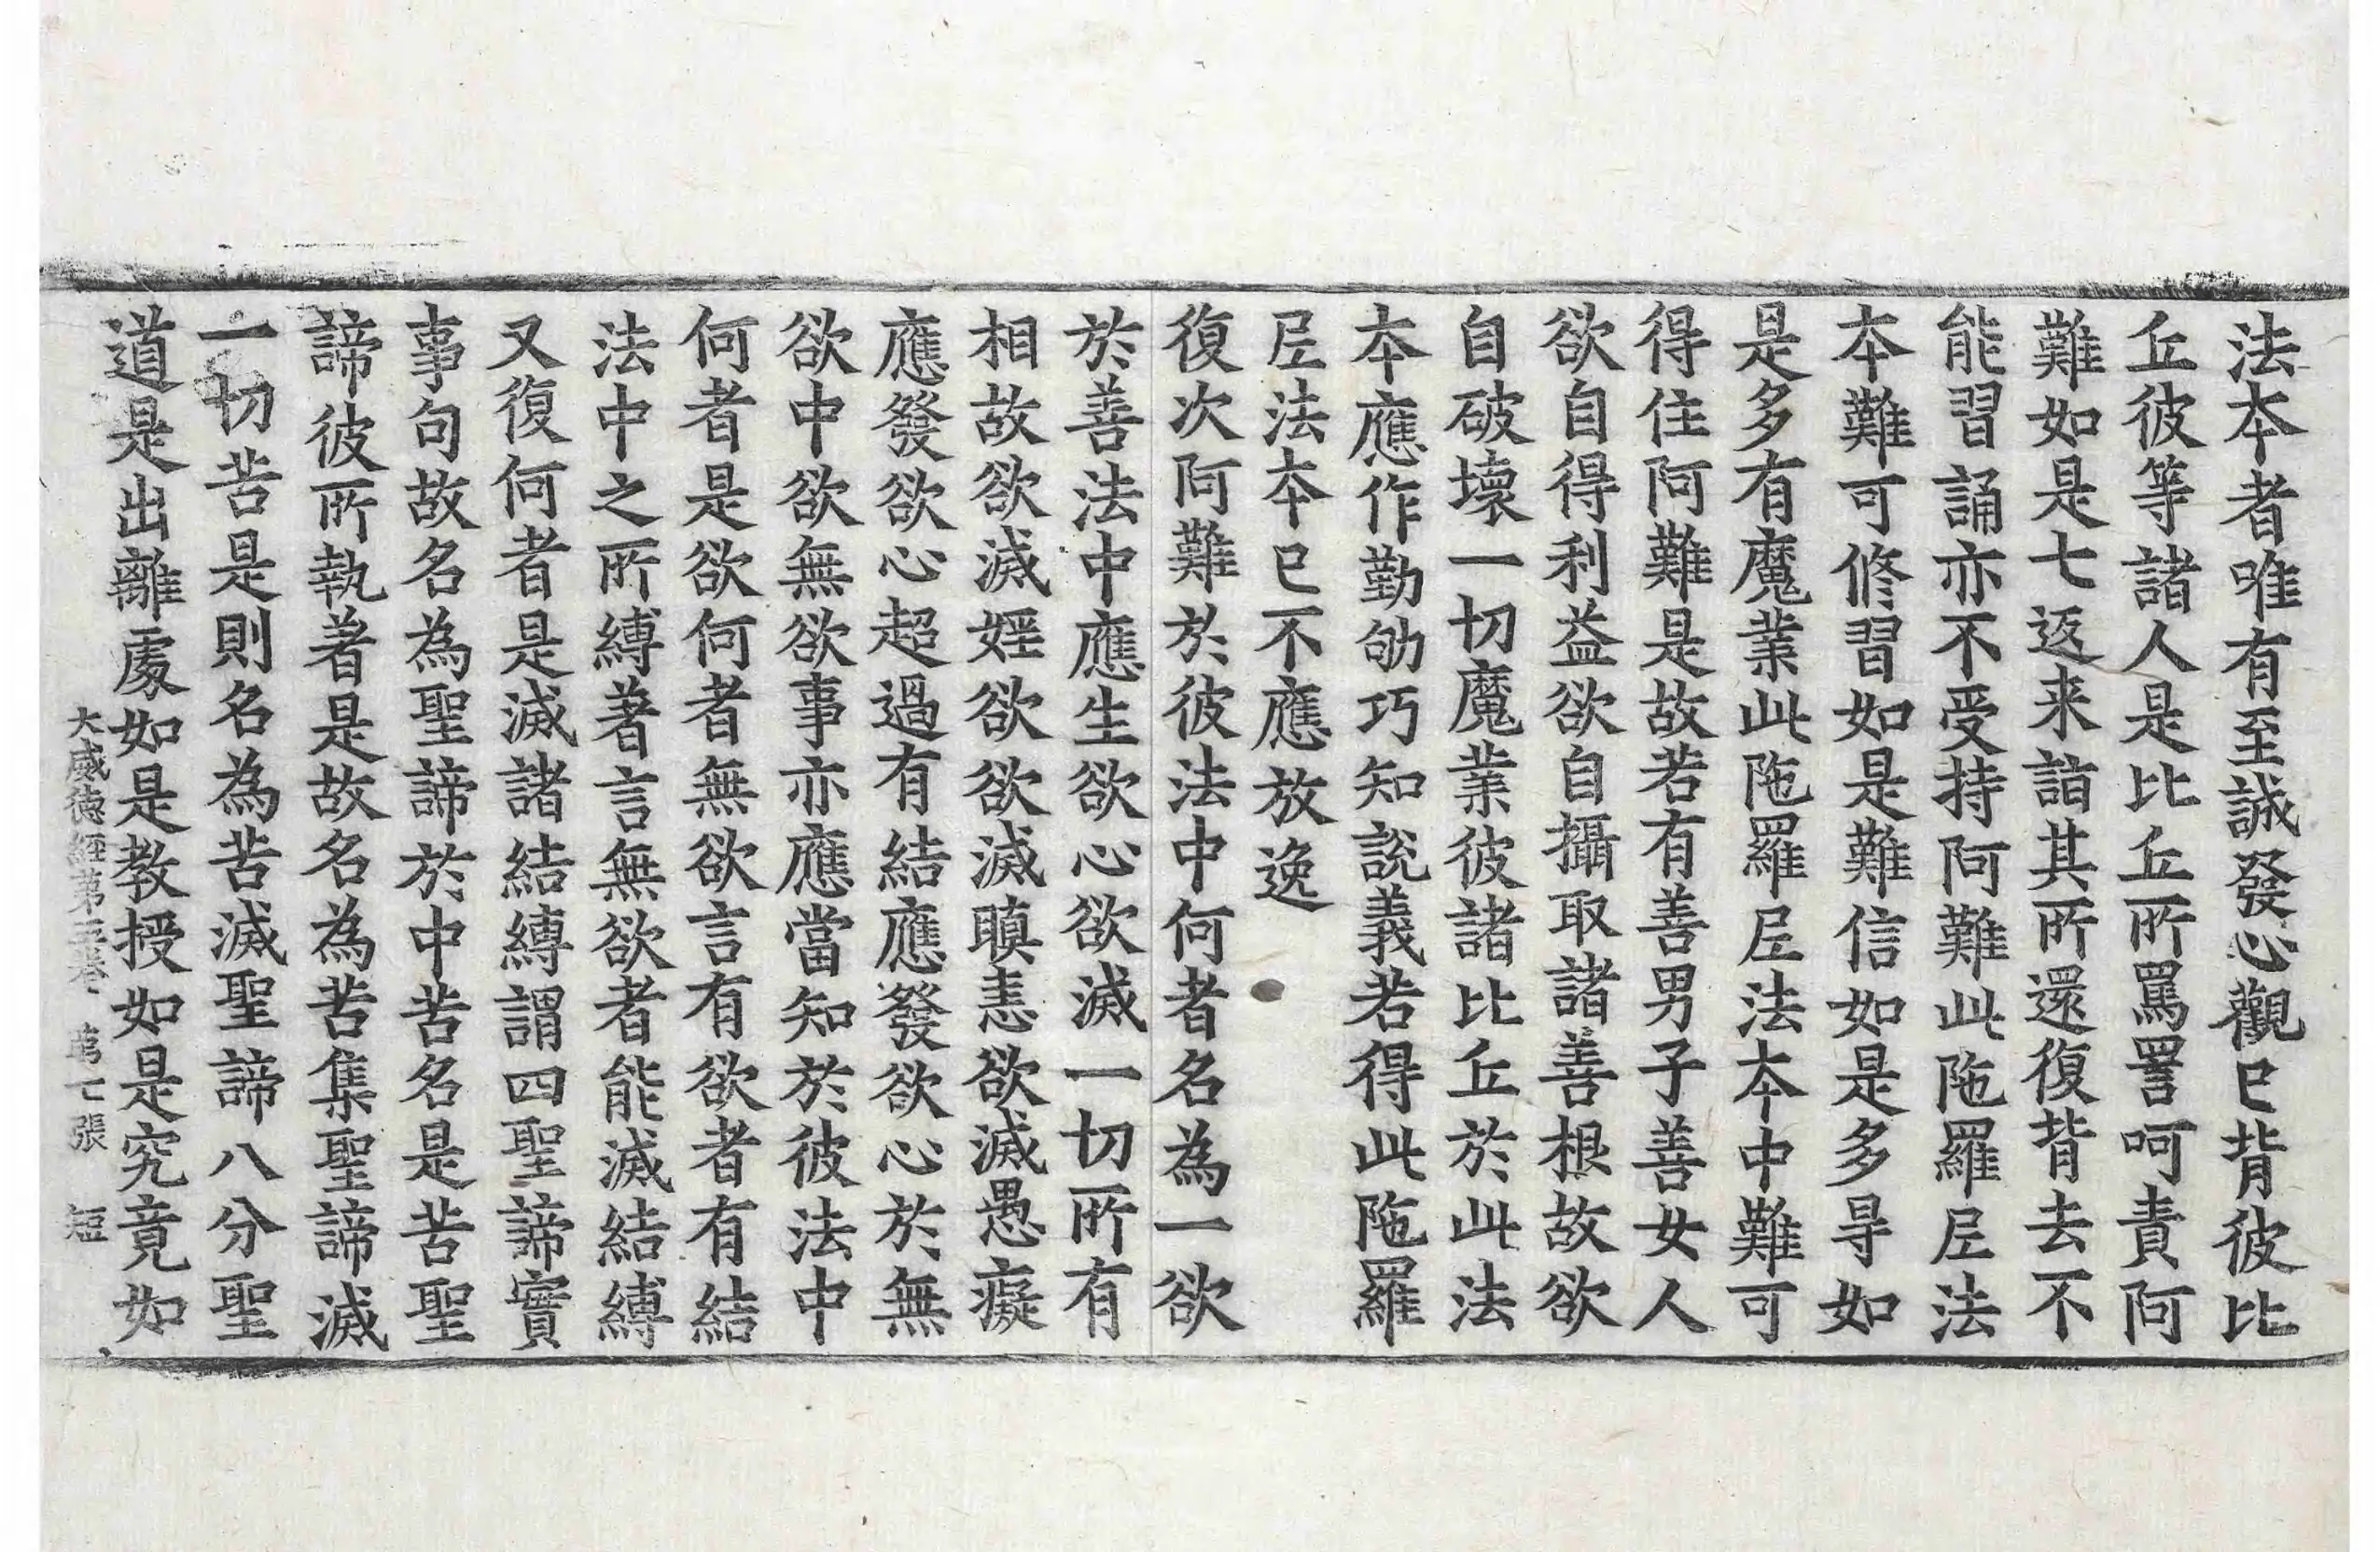 法本者唯有至誠發心觀已背彼比
丘彼等諸人是比丘所罵詈呵責阿
難如是七返来詣其所還復背去不
能習誦亦不受持阿難此陁羅𡰱法
本難可修習如是難信如是多㝵如
是多有魔業此陁羅𡰱法本中難可
得住阿難是故若有善男子善女人
欲自得利益欲自攝取諸善根故欲
自破壞一切魔業彼諸比丘於此法
本應作勤劬巧知說義若得此陁羅
𡰱法本已不應放逸
復次阿難於彼法中何者名為一欲
於善法中應生欲心欲滅一切所有
相故欲滅婬欲欲滅瞋恚欲滅愚癡
應發欲心超過有結應發欲心於無
欲中欲無欲事亦應當知於彼法中
何者是欲何者無欲言有欲者有結
法中之所縛著言無欲者能滅結縛
又復何者是滅諸結縛謂四聖諦實
事句故名為聖諦於中苦名是苦聖
諦彼所執著是故名為苦集聖諦滅
一切苦是則名為苦滅聖諦八分聖
道是出離處如是教授如是究竟如
大威德經第三卷 第七張 短